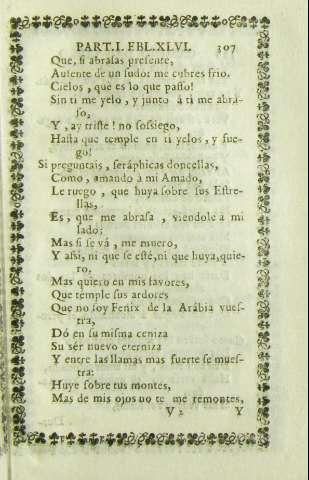 PART. I. EBL. XLVI. 307
Que, si abrasas presente,
Autente de un sudor me cubres frio.
Cielos, que es lo que passo!
Sin ti me yelo, y junto à ti me abra-
so,
Y, ay triste! no sossiego,
Hasta que temple en ti yelos, y fue-
go!
Si preguntais, seraphicas doncellas,
Como, amando à mi Amado,
Le ruego, que huya sobre sus Estre-
llas,
Es, que me abrasa, viendole a mi
lado;
Mas si se vá, me muero,
Y assi, ni que se estè, ni que huya, quie-
ro.
Mas quiero en mis favores,
Que temple sus ardores
Que no soy Fenix de la Arábia vues-
tra,
Dó en su misma ceniza
Su sér nuevo eterniza
Y entre las llamas mas fuerte se mues-
tra:
Huye sobre tus montes,
Mas de mis ojos no te me remontes,
V 2 Y